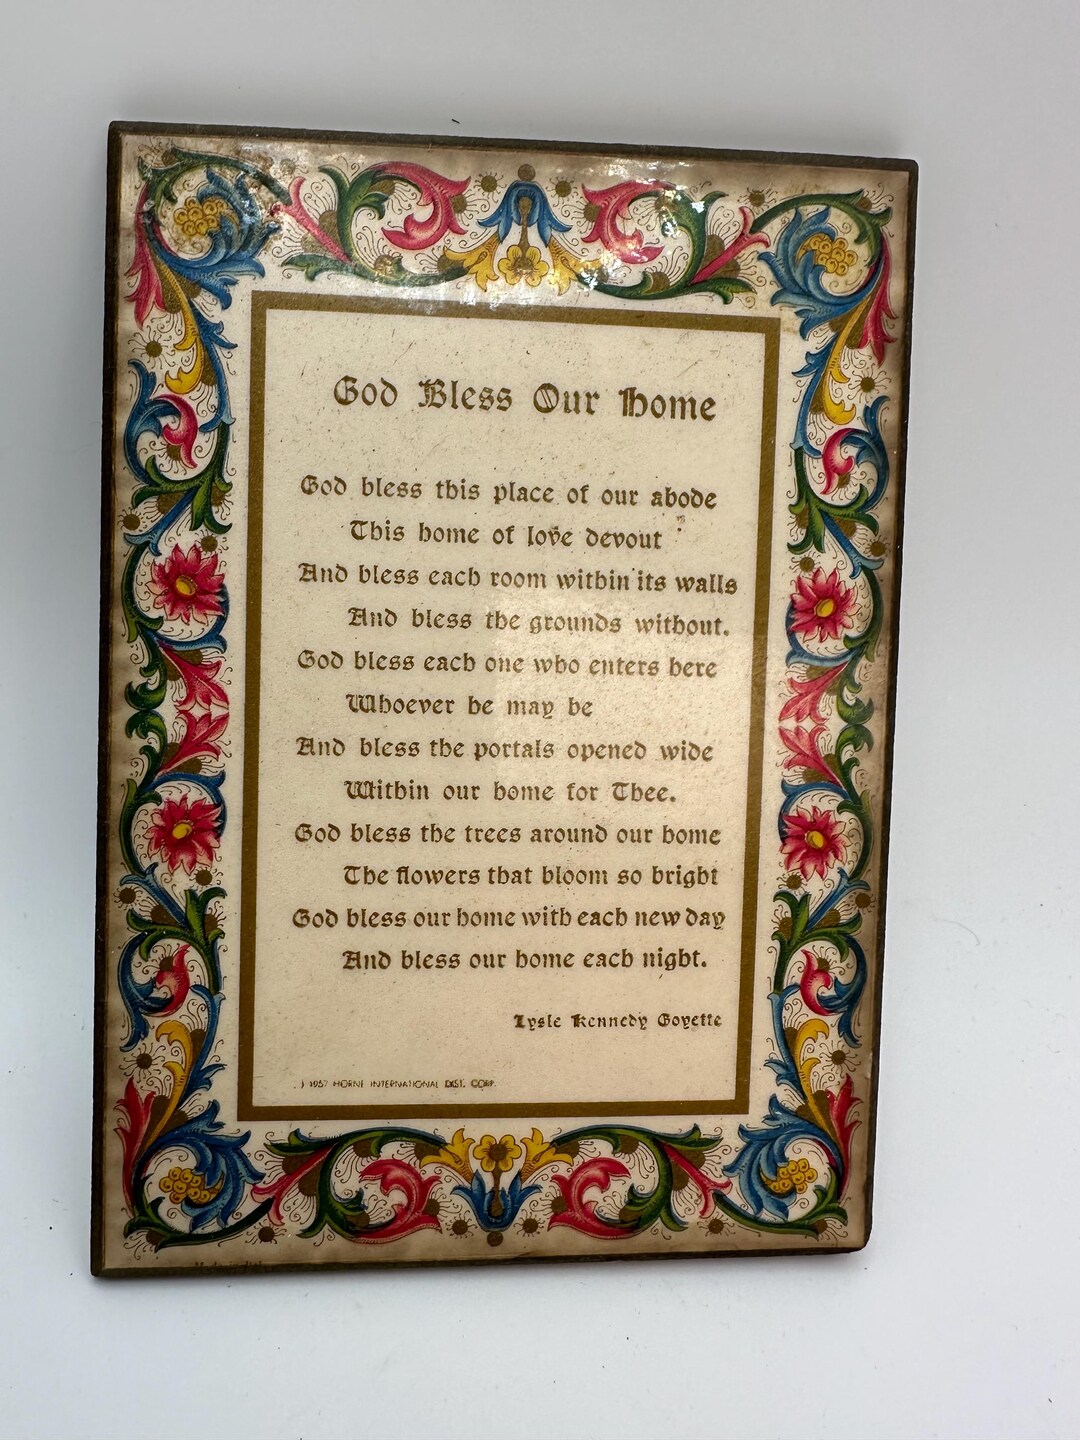 God Bless Our Home
God bless this place of our abode
This home of love devout
And bless each room within its walls
And bless the grounds without.
God bless each one who enters here
Whoever he may be
And bless the portals opened wide
Within our home for Thee.
God bless the trees around our home
The flowers that bloom so bright
God bless our home with each new day
And bless our home each night.
Lysle Kennedy Goyette
1957 HORNE INTERNATIONAL DIST. CORP.